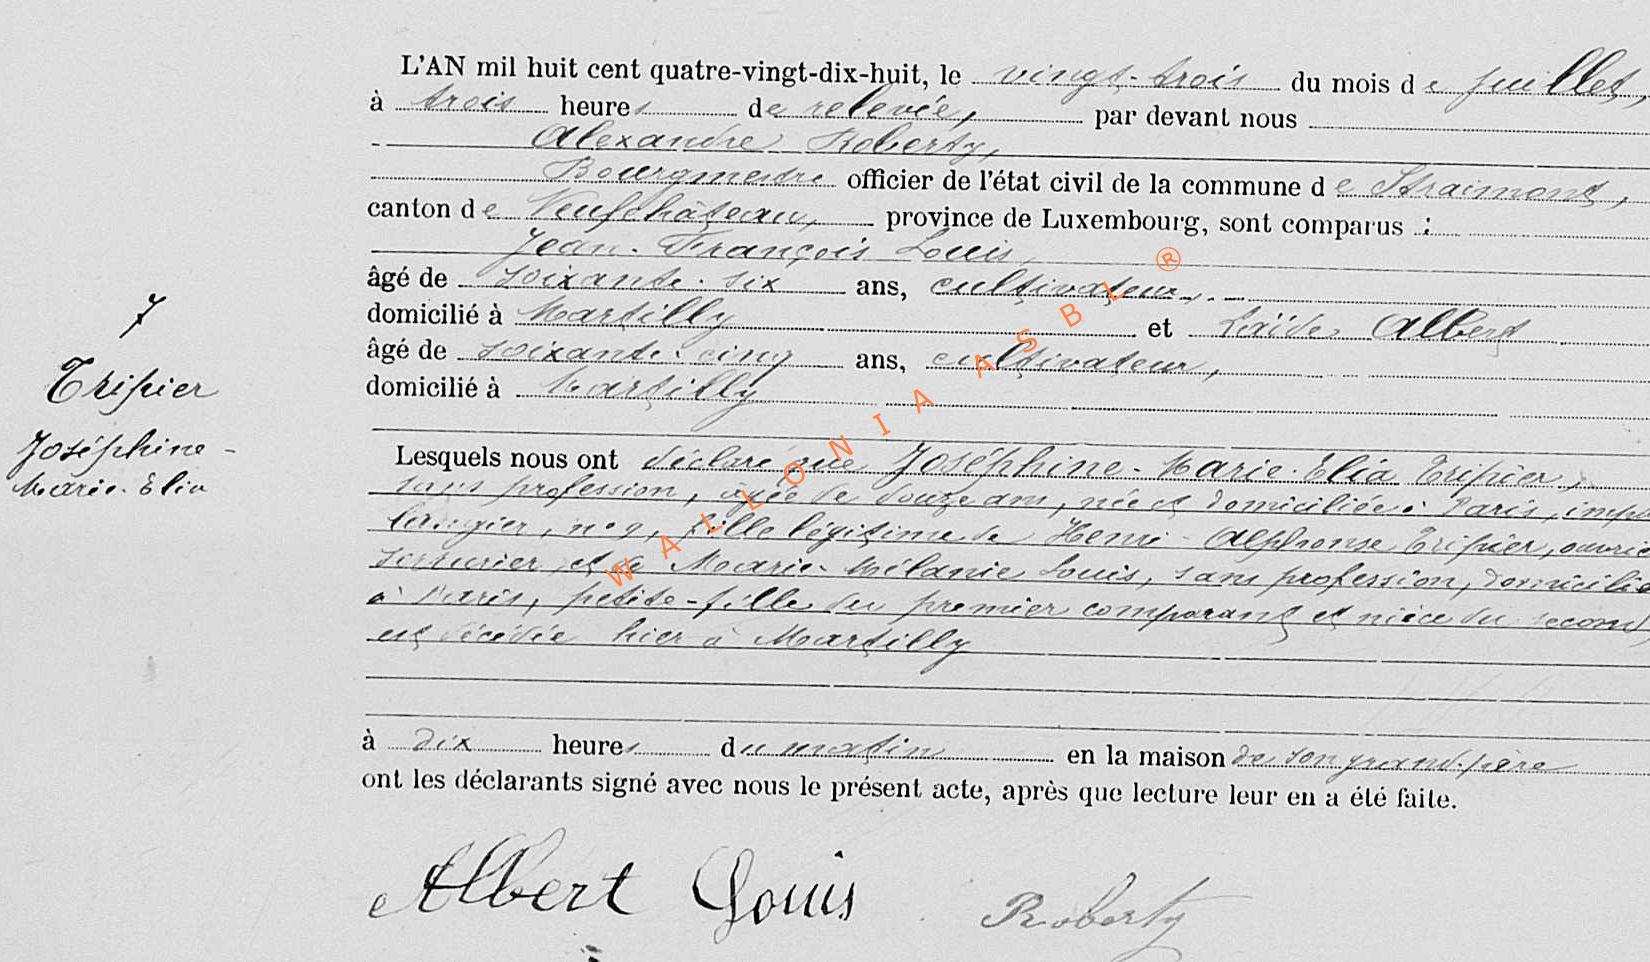 L'AN mil huit cent quatre-vingt-dix-huit, le vingt-trois du mois de juillet,
à trois heures de relevée, par devant nous
Alexandre Roberty,
Bourgmestre officier de l'état civil de la commune de Straimont,
canton de Neufchâteau, province de Luxembourg, sont comparus :
Jean-François Louis,
âgé de soixante-six ans, cultivateur,
domicilié à Martilly et Albert
âgé de soixante-cinq ans, cultivateur,
domicilié à Martilly
7
Tripier
Joséphine-
Marie-Elia
Lesquels nous ont déclaré que Joséphine-Marie-Elia Tripier,
sans profession, âgée de douze ans, née et domiciliée à Paris, impa
n° 9, fille légitime de Henri-Alphonse Tripier, ouvrie
serrurier, et de Marie-Mélanie Louis, sans profession, domicilié
à Paris, petite-fille du premier comparant et nièce du second,
est décédée hier à Martilly
à dix heures du matin en la maison de son grand-père
ont les déclarants signé avec nous le présent acte, après que lecture leur en a été faite.
Albert Louis Roberty
WALLONIA ASBL ®